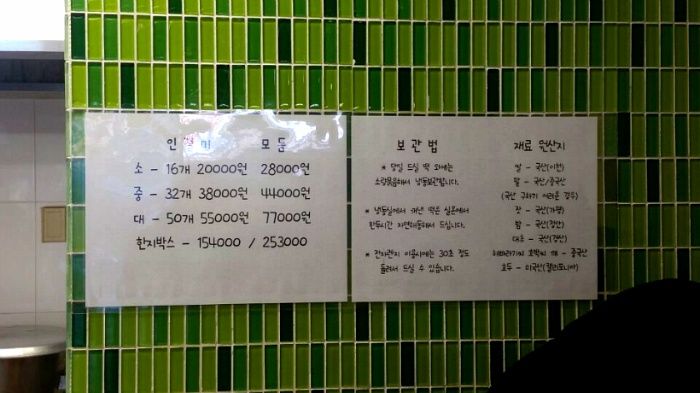 인절미 모듬
소 - 16개 20000원 28000원
중 - 32개 38000원 44000원
대 - 50개 55000원 77000원
한지박스 - 154000 / 253000
보관법
* 당일 드실 떡 외에는
소량묶음해서 냉동보관합니다.
* 냉동실에서 꺼낸 떡은 실온에서
한두시간 자연해동해서 드십니다.
* 전자렌지 이용시에는 30초 정도
돌려서 드실 수 있습니다.
재료 원산지
쌀 - 국산(이천)
팥 - 국산/중국산
(국산 구하기 어려운 경우)
잣 - 국산(가평)
밤 - 국산(정안)
대추 - 국산(경산)
해바라기씨 호박씨 깨 - 중국산
호두 - 미국산(캘리포니아)